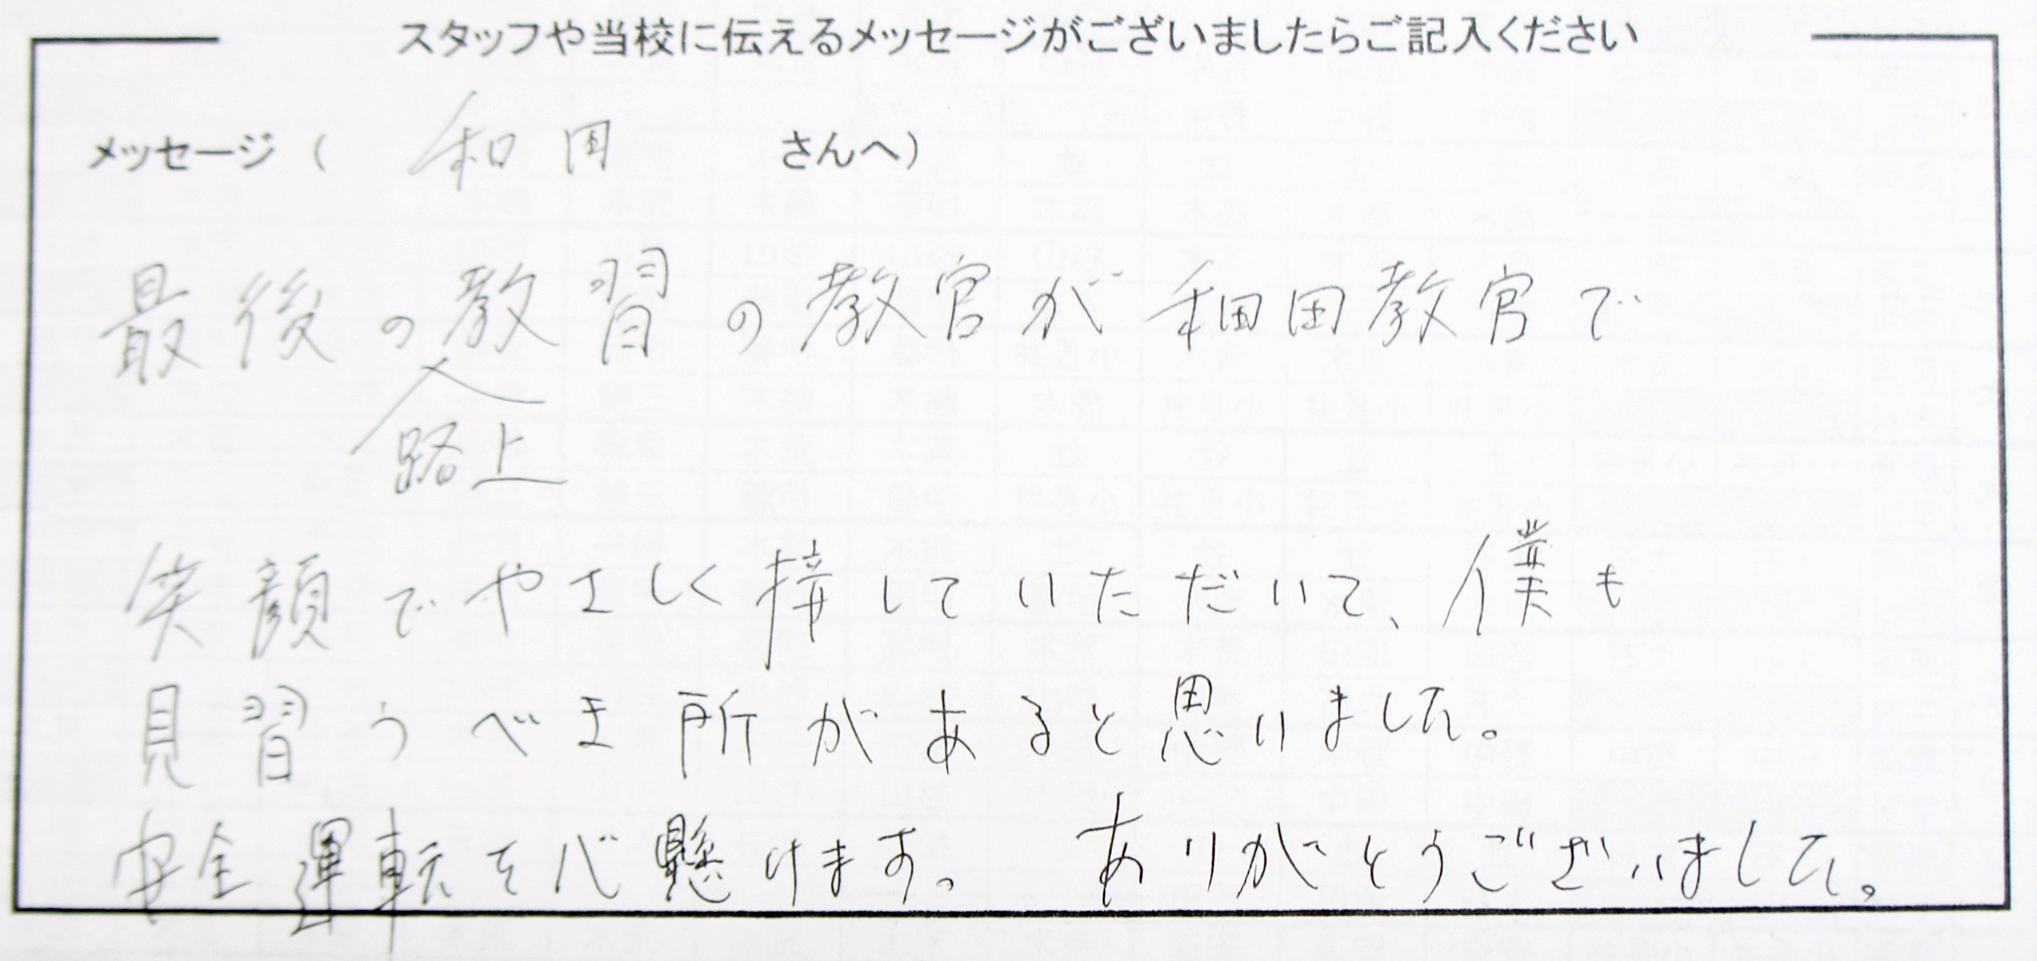 スタッフや当校に伝えるメッセージがございましたらご記入ください
メッセージ ( 和田 さんへ)
最後の教習の教官が和田教官で
路上
笑顔でやさしく接していただいて、僕も
見習うべき所があると思いました。
安全運転を心懸けます。 ありがとうございました。